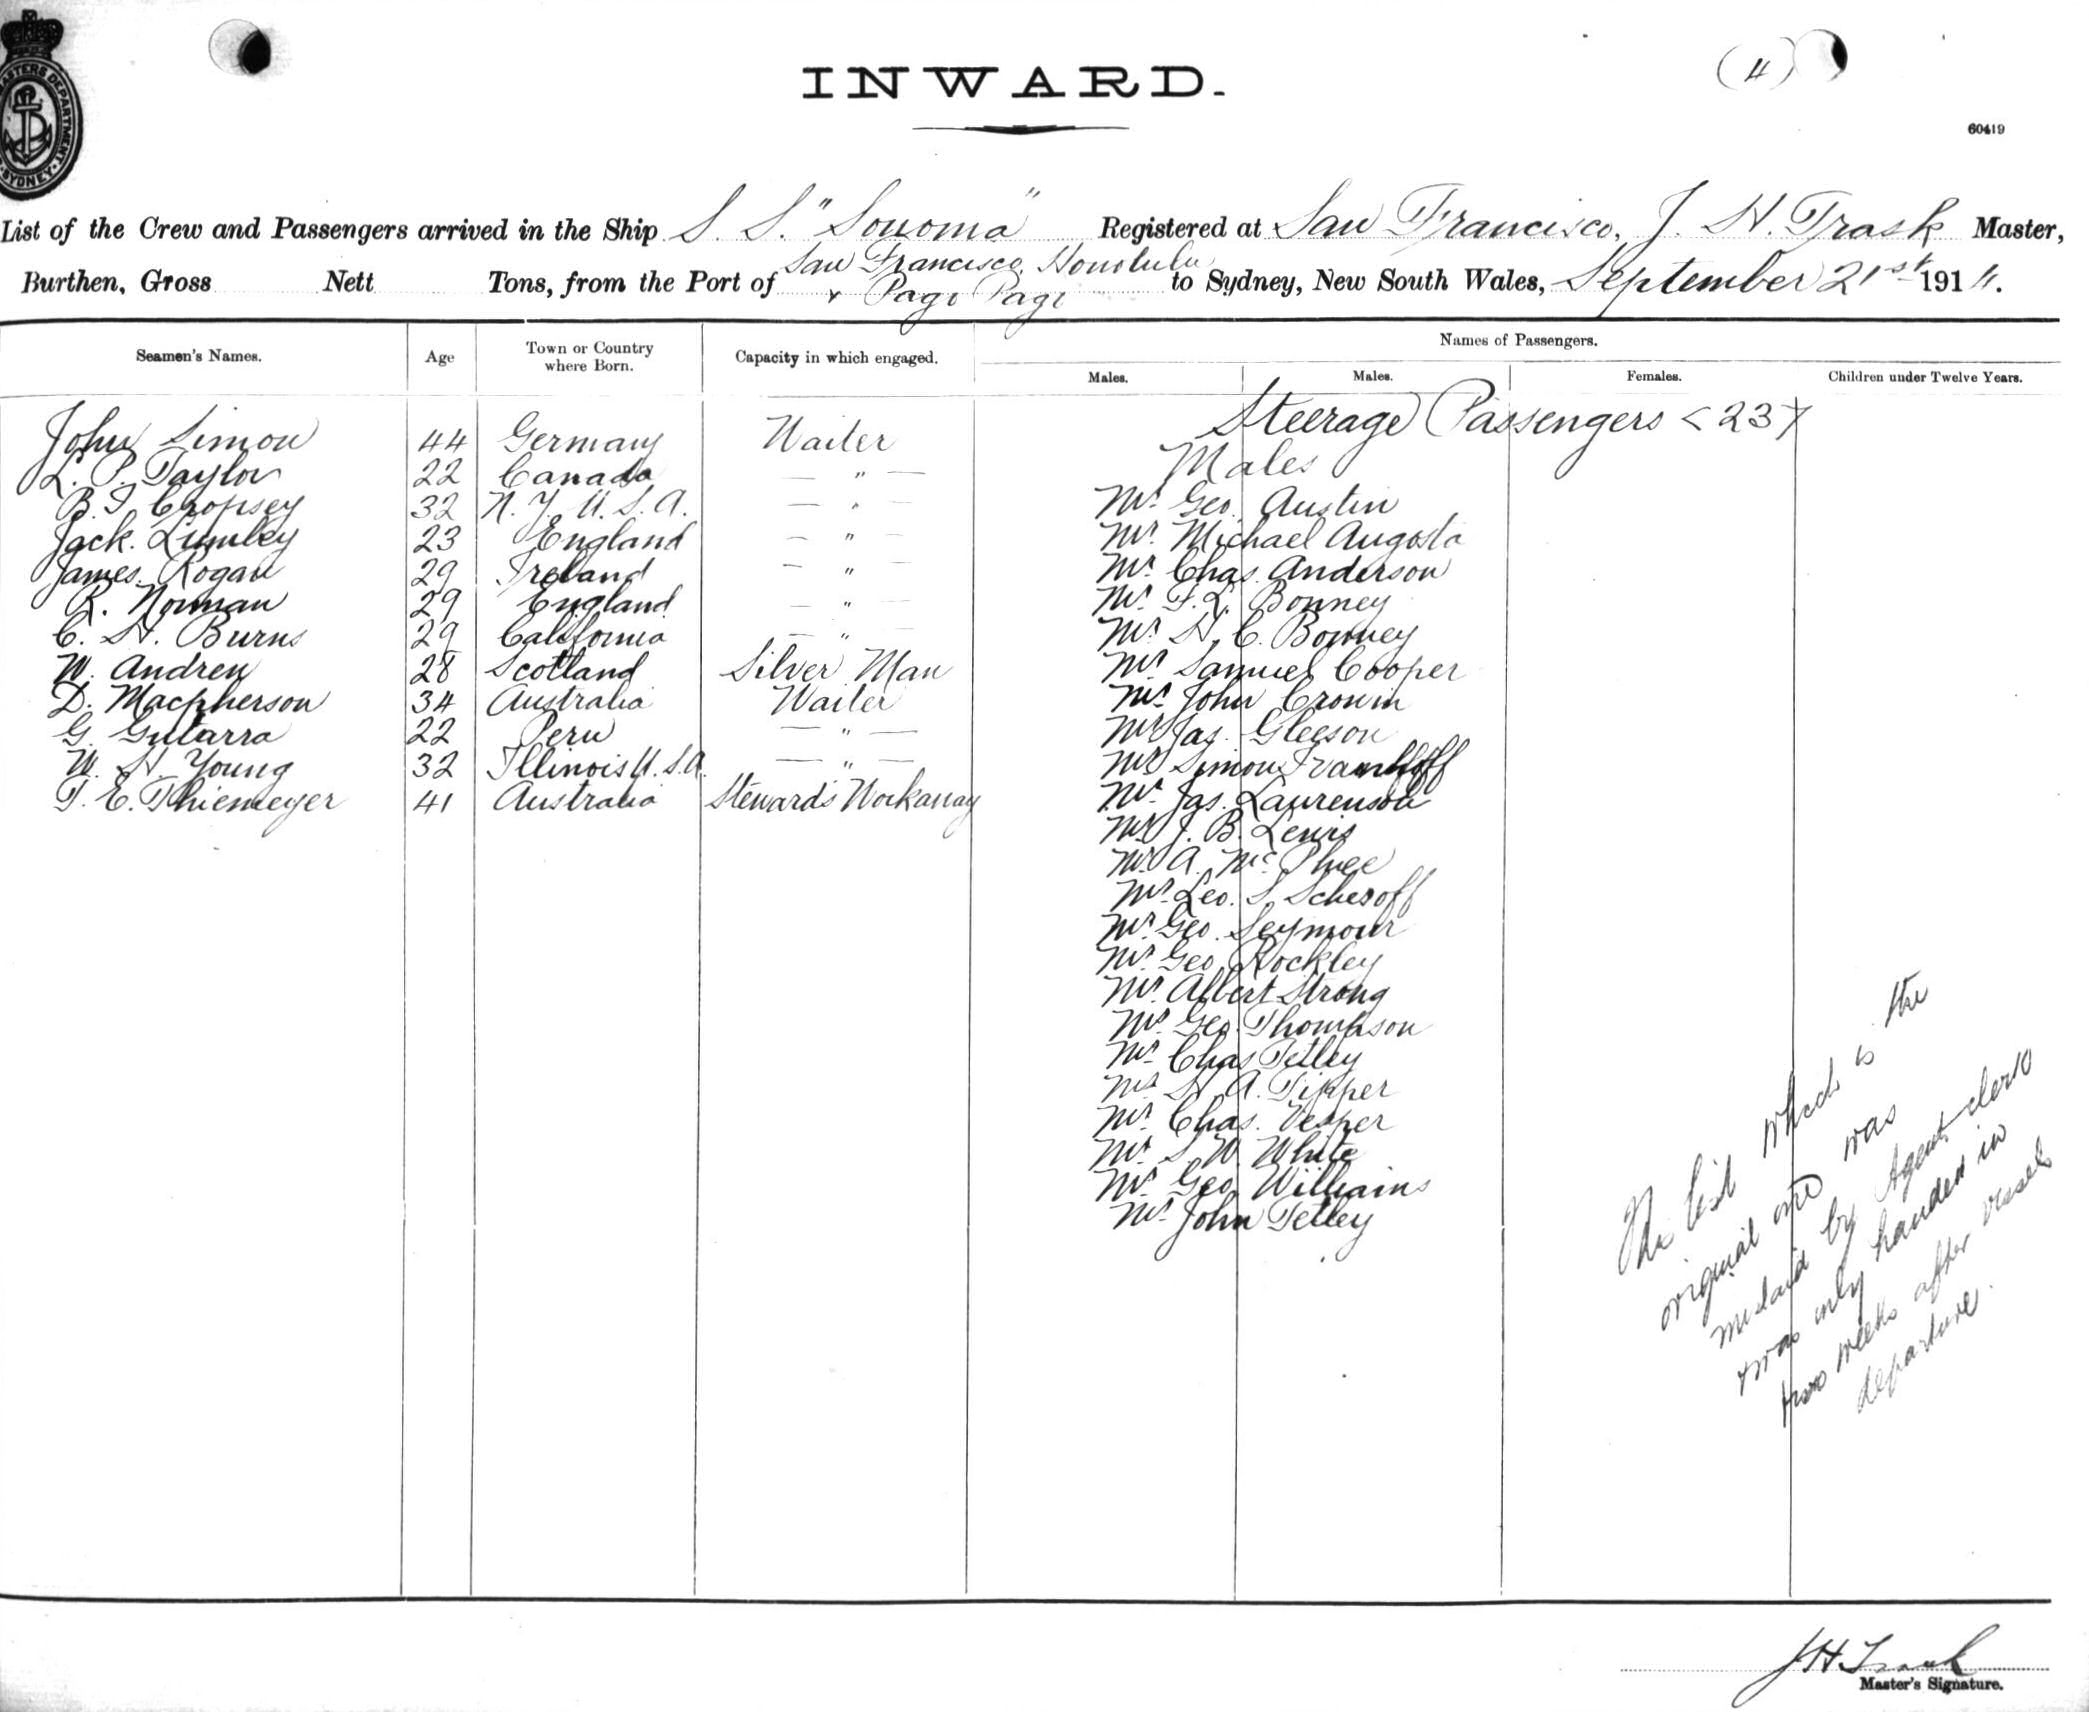 MASTERS DEPARTMENT SYDNEY
INWARD.
(4)
60419
List of the Crew and Passengers arrived in the Ship S. S. "Sonoma" Registered at San Francisco, J. H. Trask Master,
Burthen, Gross Nett Tons, from the Port of San Francisco, Honolulu & Pago Pago to Sydney, New South Wales, September 21st 1914.
Seamen's Names. Age Town or Country where Born. Capacity in which engaged. Names of Passengers.
Males. Males. Females. Children under Twelve Years.
Steerage Passengers <23>
Males
John Simon 44 Germany Waiter
L. P. Taylor 22 Canada — " —
B. I. Cropsey 32 N. Y. U. S. A. — " —
Jack. Lumley 23 England — " —
James. Rogan 29 Ireland — " —
R. Norman 29 England — " —
C. H. Burns 29 California — " —
W. Andrew 28 Scotland Silver Man
D. Macpherson 34 Australia Waiter
G. Gutarra 22 Peru — " —
W. H. Young 32 Illinois U. S. A. — " —
T. E. Thiemeyer 41 Australia Stewards Workaway
Mr. Geo. Austin
Mr. Michael Augosta
Mr. Chas. Anderson
Mr. F. L. Bonney
Mr. H. C. Bonney
Mr. Samuel Cooper
Mr. John Cronin
Mr. Jas. Gleeson
Mr. Simon
Mr. Jas. Laurenson
Mr. J. B. Lewis
Mr. A. McPhee
Mr. Leo. S. Scheroff
Mr. Geo. Seymour
Mr. Geo. Rockley
Mr. Albert Strong
Mr. Geo. Thompson
Mr. Chas Tetley
Mr. H. A. Tipper
Mr. Chas. Vesper
Mr. S. W. White
Mr. Geo. Williams
Mr. John Tetley
This list which is the
original one was
mislaid by Agents clerk
& was only handed in
two weeks after vessels
departure.
J H Trask
Master's Signature.